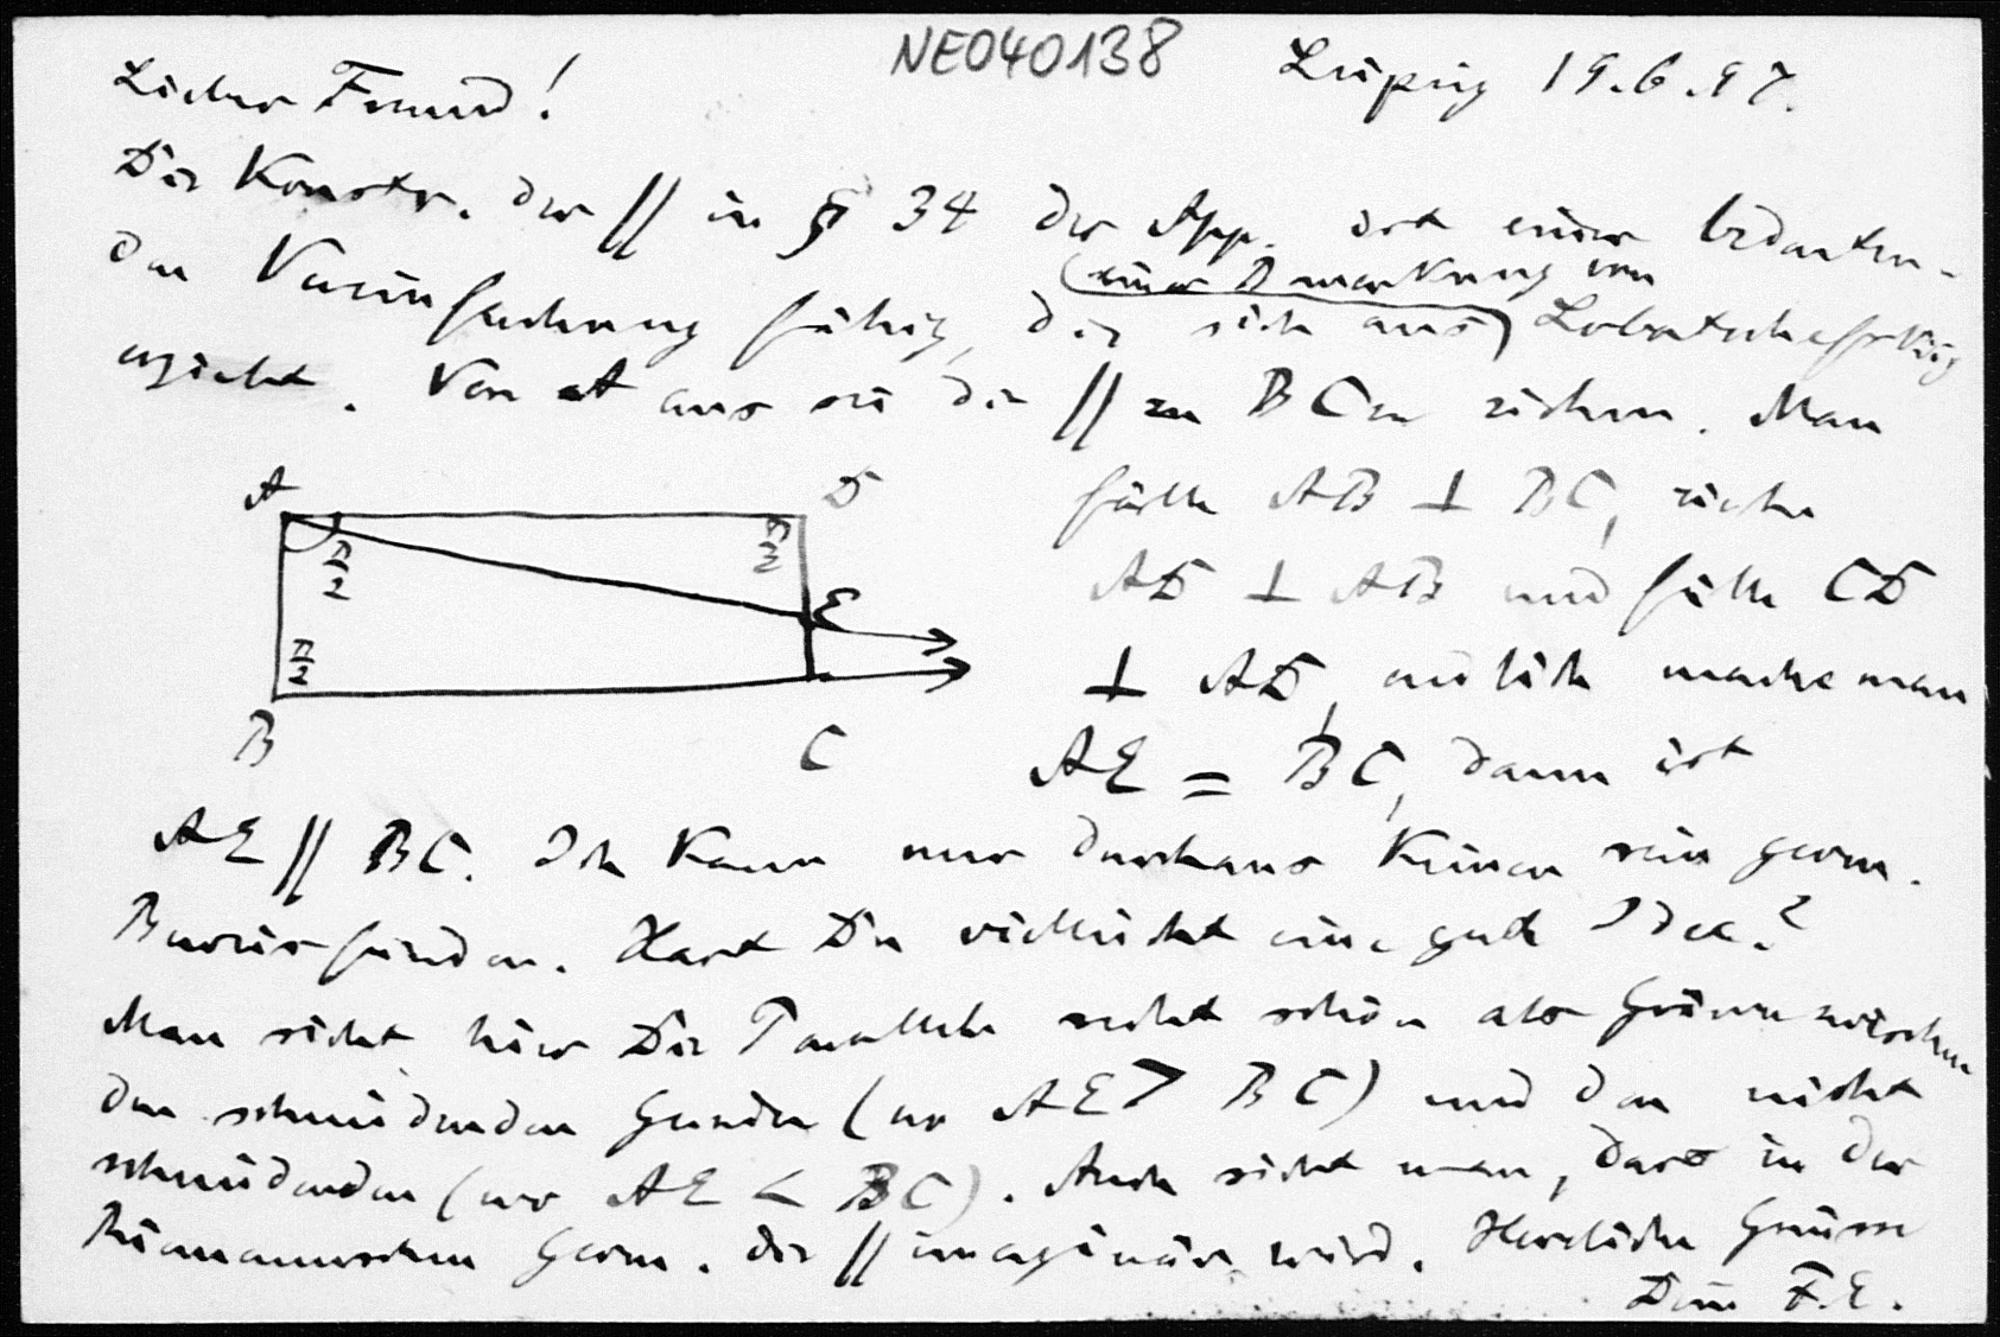 NE040138
Leipzig 19.6.97.
Lieber Freund!
Die Konstr. der || in § 34 der App. ist einer bedeuten-
den Vereinfachung fähig, die sich aus einer Bemerkung von Lobatschefskij
ergiebt. Von A aus sei die || zu BC zu ziehen. Man
A D
fälle AB ⊥ BC, ziehe
π/2 π/2
AD ⊥ AB und fälle CD
E
π/2
⊥ AD, endlich mache man
B C
AE = BC, dann ist
AE || BC. Ich kann nur durchaus keinen rein geom.
Beweis finden. Hast Du vielleicht eine gute Idee?
Man sieht hier die Parallele recht schön als Grenze zwischen
den schneidenden Geraden (wo AE > BC) und den nicht
schneidenden (wo AE < BC). Auch sieht man, dass in der
Riemannschen Geom. die || imaginär wird. Herzliche Grüsse
Dein F.E.